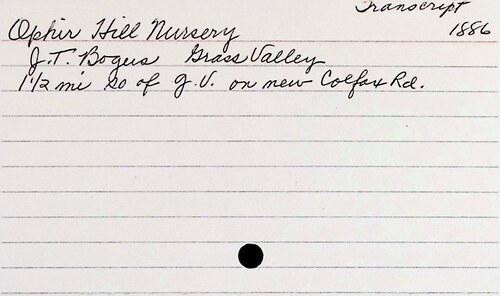 Transcript
1886
Ophir Hill Nursery
J.T. Bogues Grass Valley
1 1/2 mi So of G.V. on new Colfax Rd.